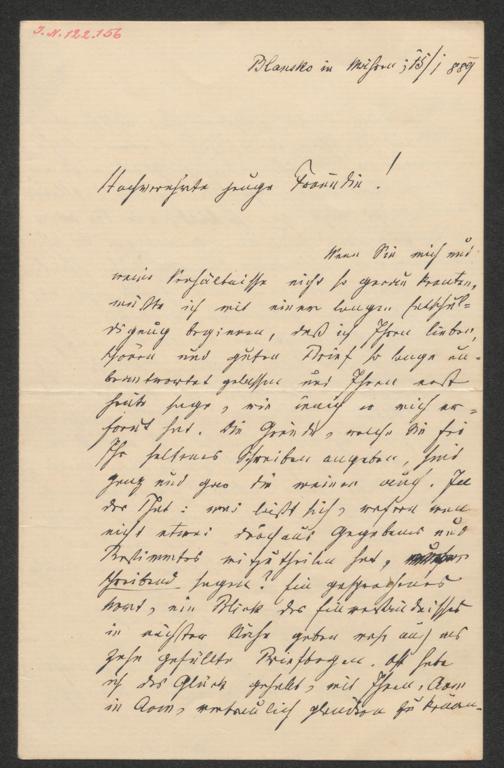 I. N. 122.156
Blansko in Mähren; 15/1 889
Hochverehrte junge Freundin!
Wenn Sie mich und
meine Verhältnisse nicht so genau kennten,
müßte ich mit einer langen Entschul-
digung beginnen, daß ich Ihren lieben,
schönen und guten Brief so lange un-
beantwortet gelassen und Ihnen erst
heute sage, wie innig er mich er-
freut hat. Die Gründe, welche Sie für
Ihr seltenes Schreiben angeben, sind
ganz und gar die meinen auch. In
der That: was läßt sich, wofern man
nicht etwas durchaus Gegebenes und
Bestimmtes mitzutheilen hat,
schreibend sagen? Ein gesprochenes
Wort, ein Blick des Einverständnisses
in nächster Nähe geben mehr aus als
zehn gefüllte Briefbogen. Oft habe
ich das Glück gehabt, mit Ihnen, Arm
in Arm, vertraulich plaudern zu können